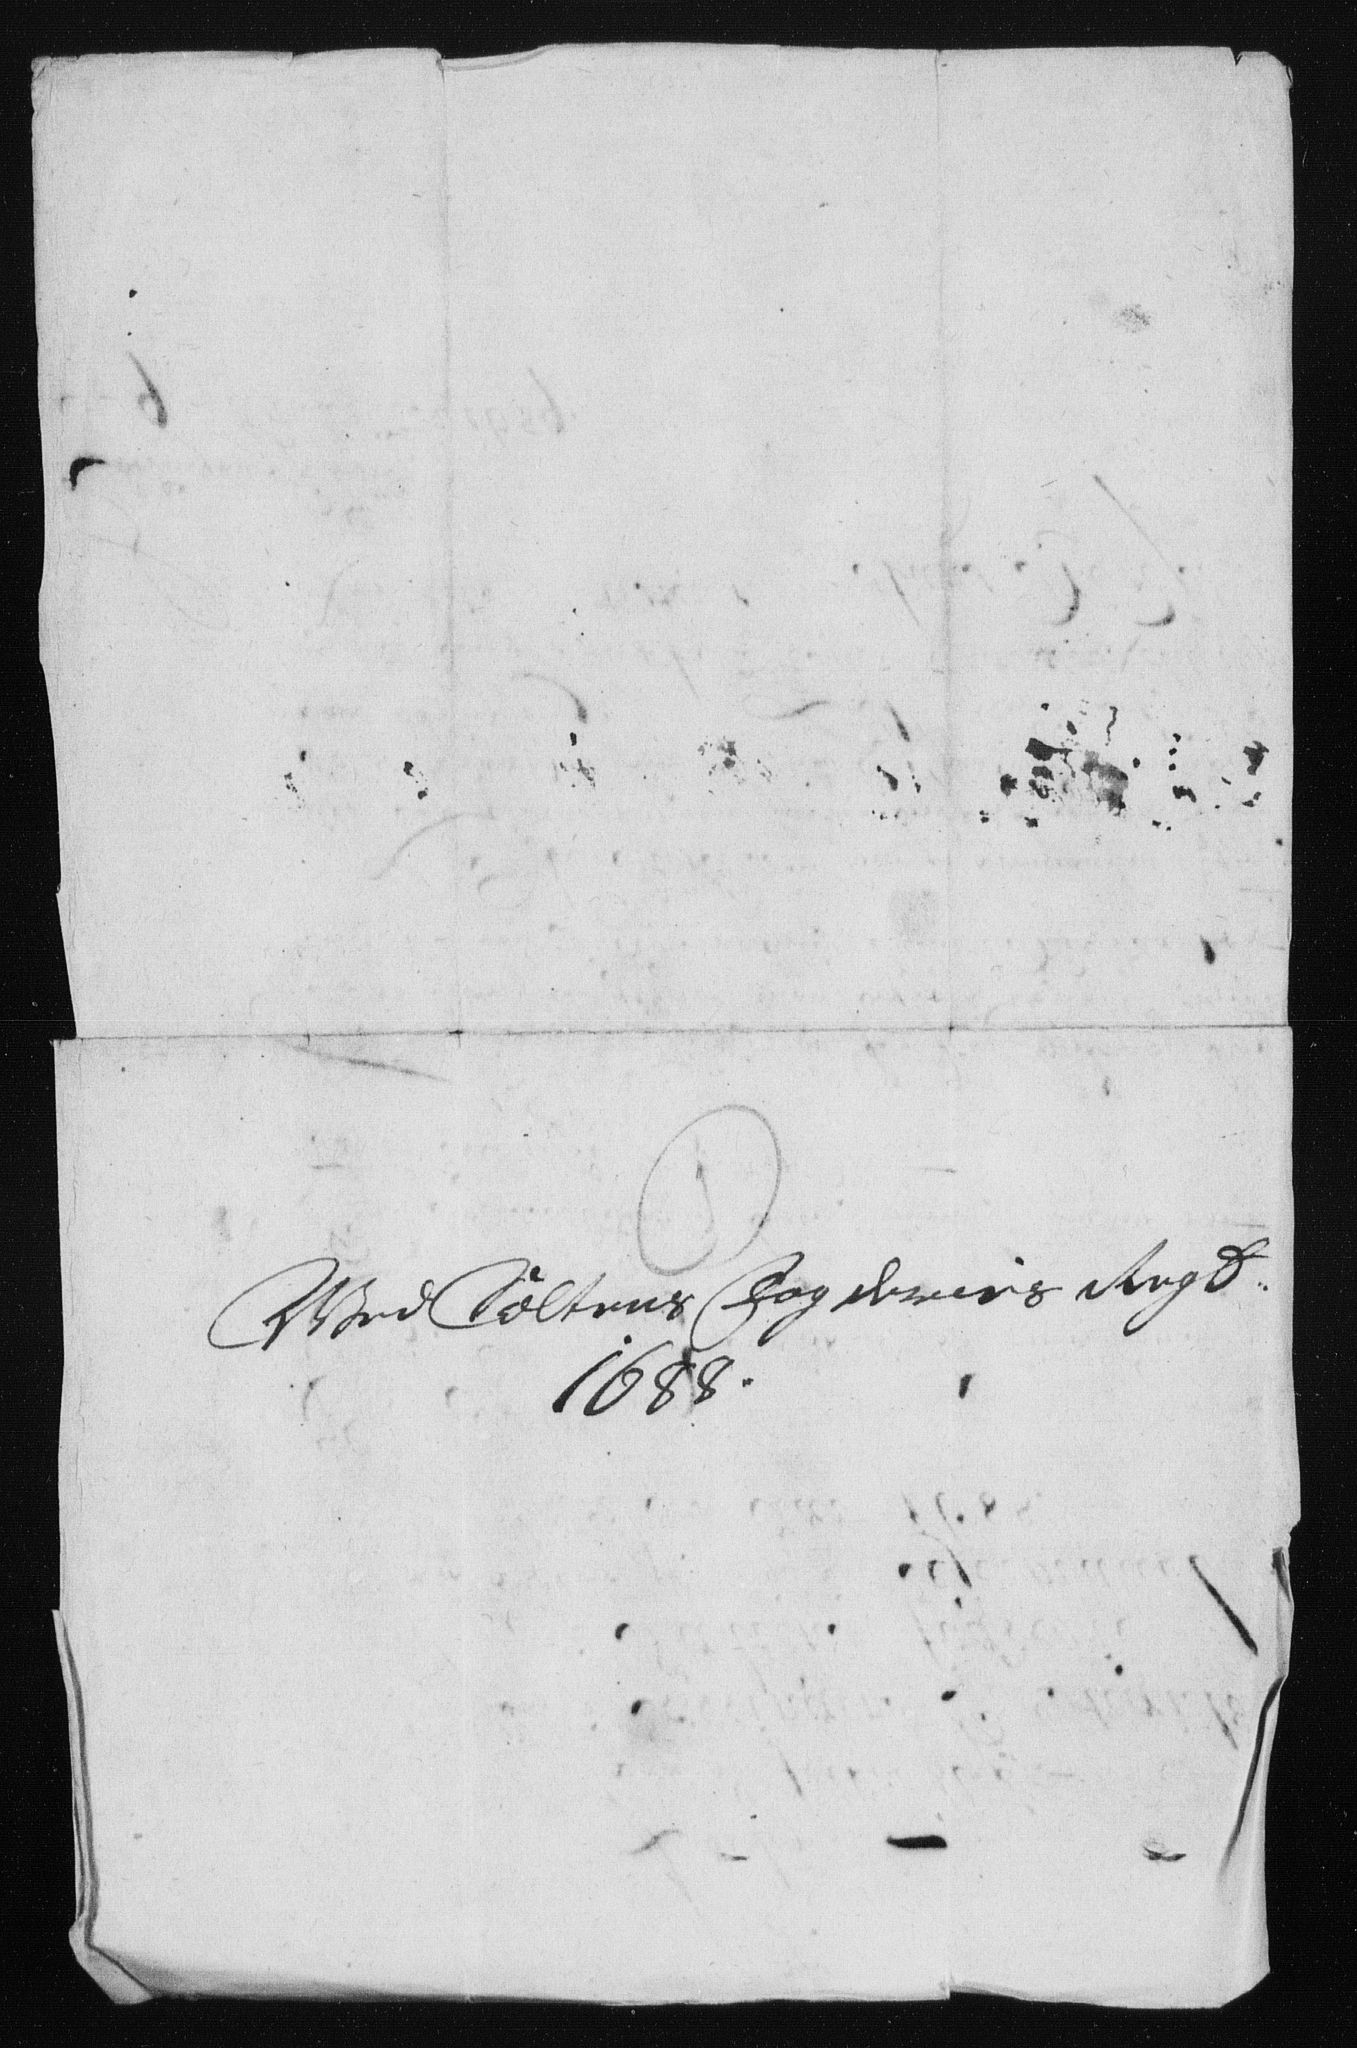 1
Wed Soltens Fogderies Regb.
1688.